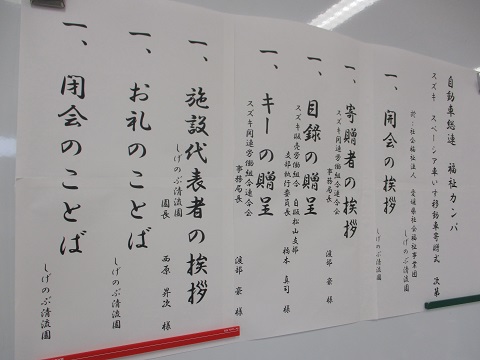 自動車総連 福祉カンパ
スズキ スペーシア車いす移動車寄贈式 次第
於:社会福祉法人 愛媛県社会福祉事業団
しげのぶ清流園
一、開会の挨拶
しげのぶ清流園
一、寄贈者の挨拶
スズキ関連労働組合連合会
事務局長 渡部 豪 様
一、目録の贈呈
スズキ販売労働組合 自販松山支部
支部執行委員長 橋本 真司 様
一、キーの贈呈
スズキ関連労働組合連合会
事務局長 渡部 豪 様
一、施設代表者の挨拶
しげのぶ清流園
園長 西原 昇次 様
一、お礼のことば
しげのぶ清流園
一、閉会のことば
しげのぶ清流園